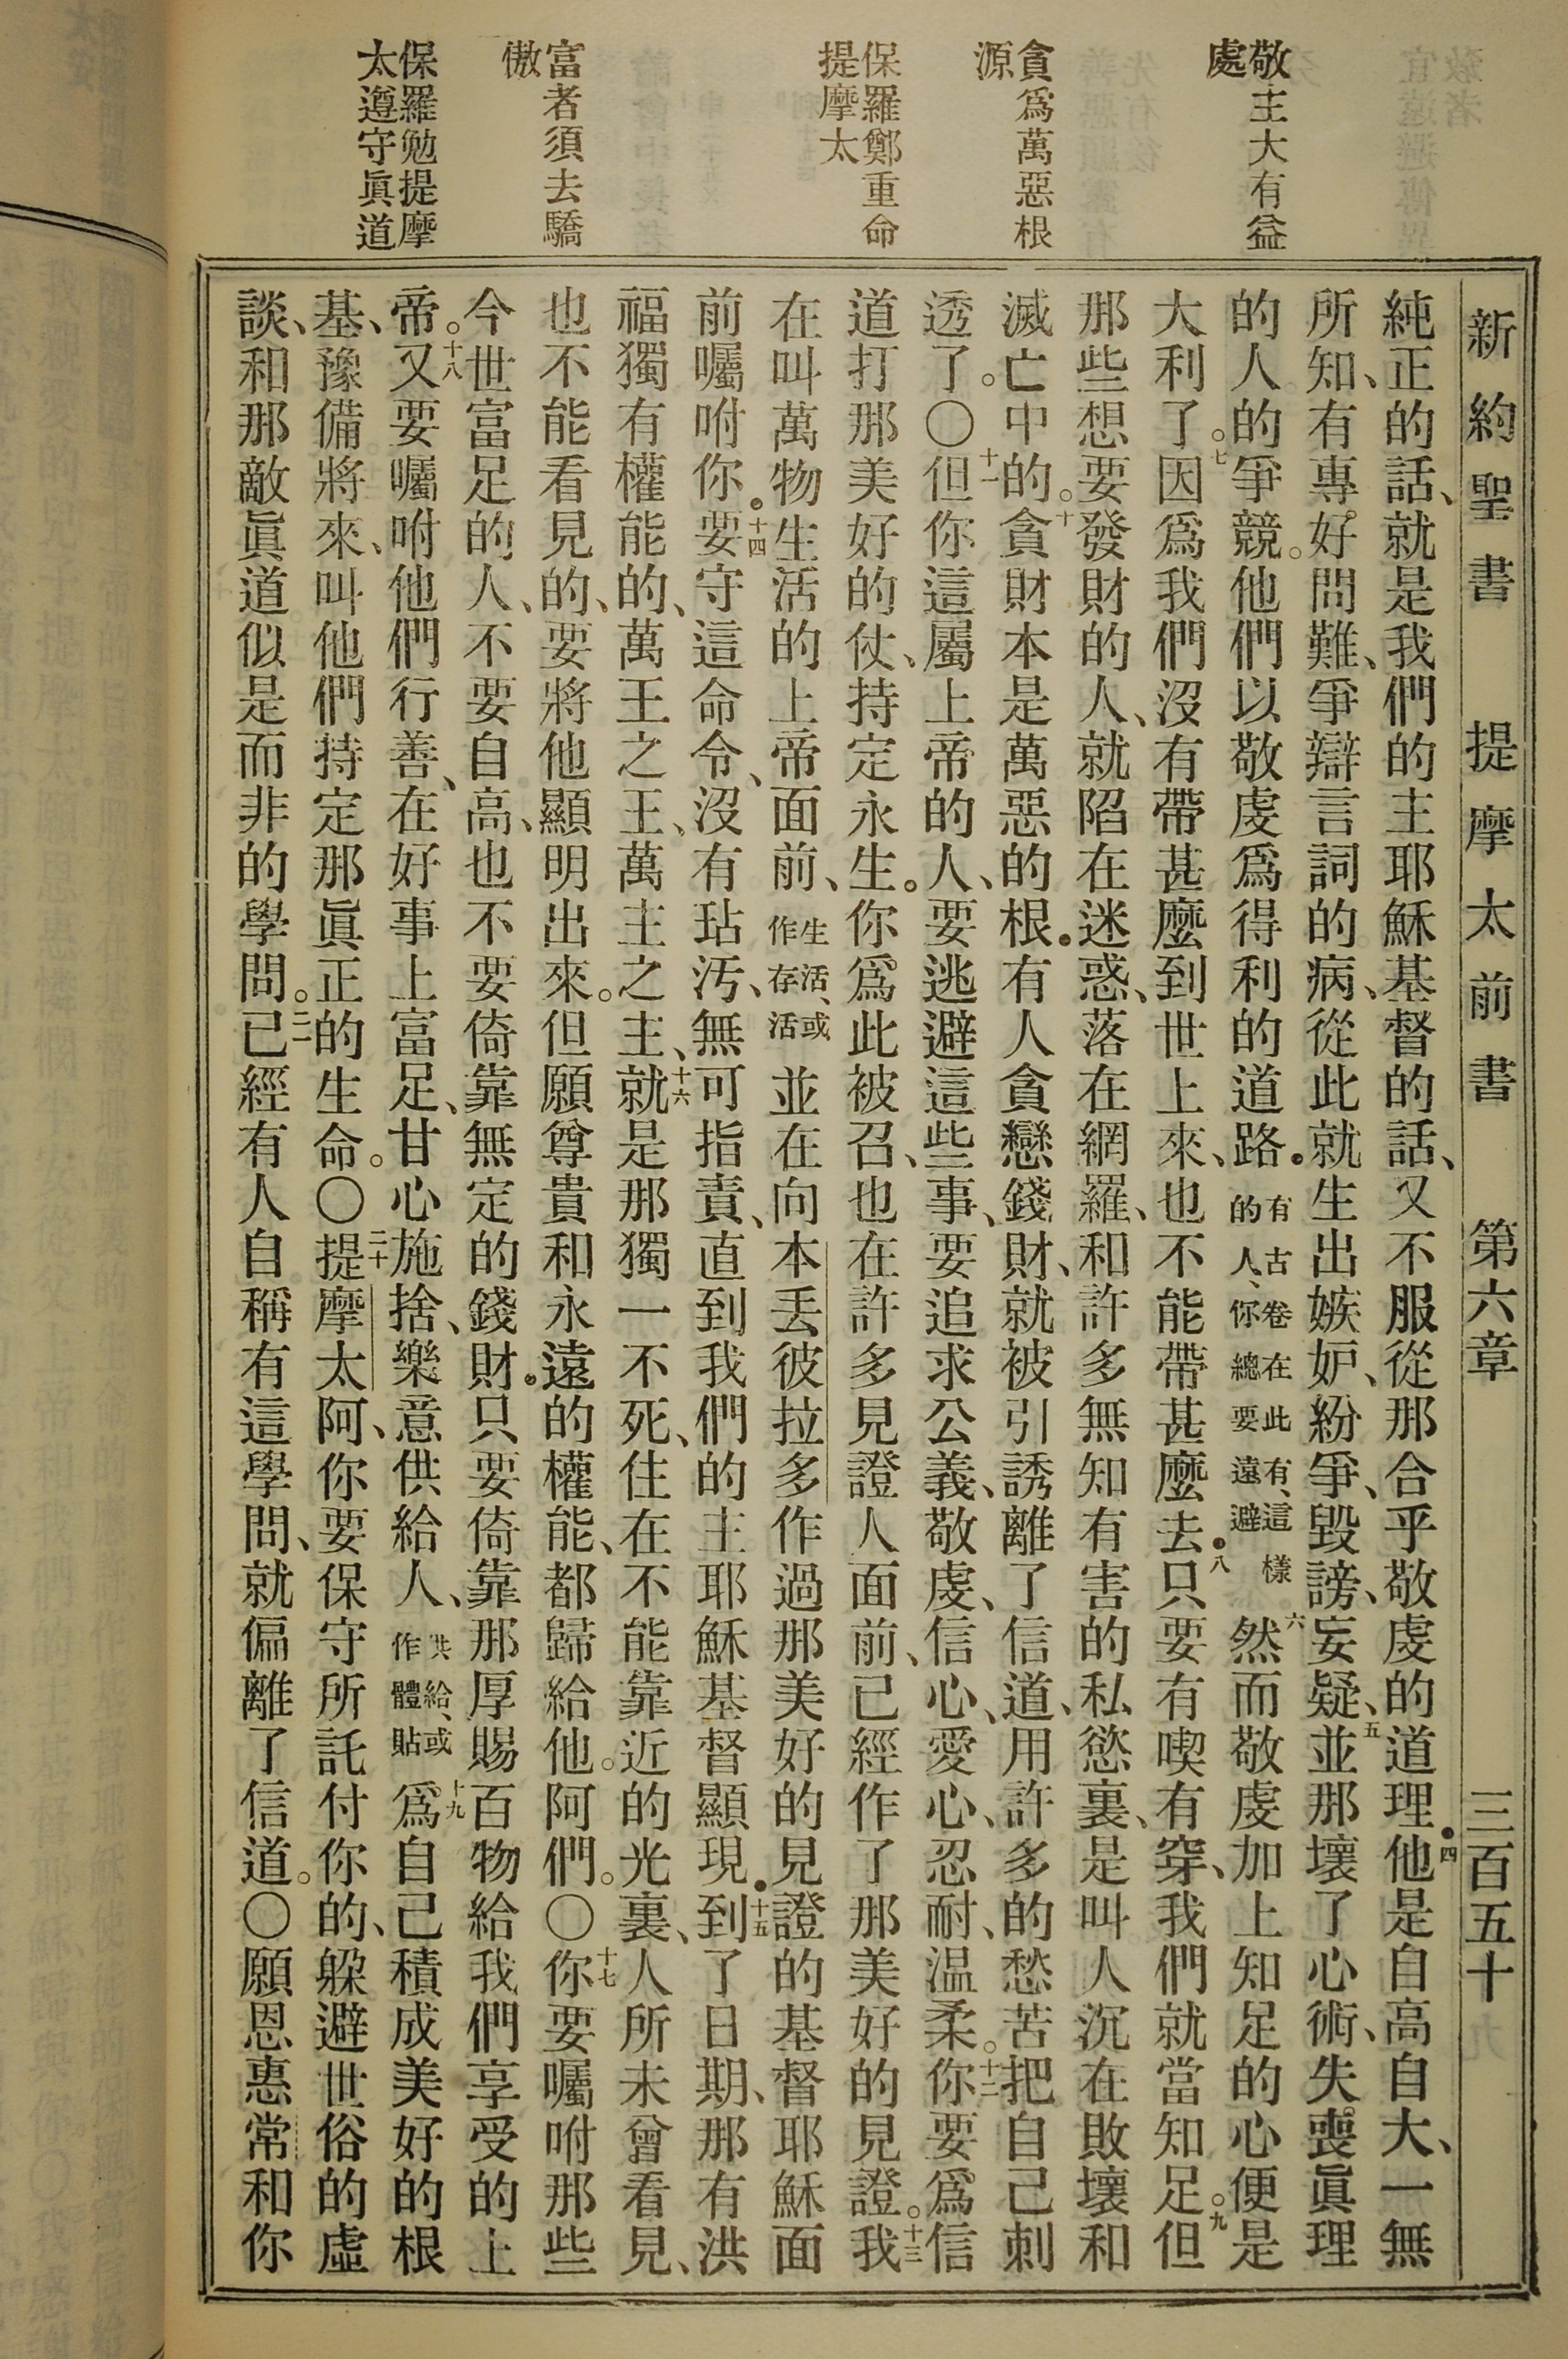 敬主大有益
處
貪爲萬惡根
源
保羅鄭重命
提摩太
富者須去驕
傲
保羅勉提摩
太遵守眞道
新約聖書 提摩太前書 第六章 三百五十九
純正的話、就是我們的主耶穌基督的話、又不服從那合乎敬虔的道理。四他是自高自大、一無
所知、有專好問難、爭辯言詞的病、從此就生出嫉妒、紛爭、毀謗、妄疑、五並那壞了心術、失喪眞理
的人的爭競。他們以敬虔爲得利的道路。有古卷在此有、這樣的人、你總要遠避六然而敬虔加上知足的心便是
大利了。七因爲我們沒有帶甚麼到世上來、也不能帶甚麼去。八只要有喫有穿、我們就當知足。九但
那些想要發財的人、就陷在迷惑、落在網羅、和許多無知有害的私慾裏、是叫人沉在敗壞和
滅亡中的。十貪財本是萬惡的根。有人貪戀錢財、就被引誘離了信道、用許多的愁苦把自己刺
透了。〇十一但你這屬上帝的人、要逃避這些事、要追求公義、敬虔、信心、愛心、忍耐、温柔。十二你要爲信
道打那美好的仗、持定永生。你爲此被召、也在許多見證人面前、已經作了那美好的見證。十三我
在叫萬物生活的上帝面前、生活、或作存活並在向本丟彼拉多作過那美好的見證的基督耶穌面
前囑咐你。十四要守這命令、沒有玷汚、無可指責、直到我們的主耶穌基督顯現。十五到了日期、那有洪
福獨有權能的、萬王之王、萬主之主、十六就是那獨一不死、住在不能靠近的光裏、人所未曾看見、
也不能看見的、要將他顯明出來。但願尊貴和永遠的權能、都歸給他。阿們。〇十七你要囑咐那些
今世富足的人、不要自高、也不要倚靠無定的錢財。只要倚靠那厚賜百物給我們享受的上
帝。十八又要囑咐他們行善、在好事上富足、甘心施捨、樂意供給人、供給、或作體貼十九爲自己積成美好的根
基、豫備將來、叫他們持定那眞正的生命。〇二十提摩太阿、你要保守所託付你的、躱避世俗的虛
談、和那敵眞道似是而非的學問。二一已經有人自稱有這學問、就偏離了信道。〇願恩惠常和你